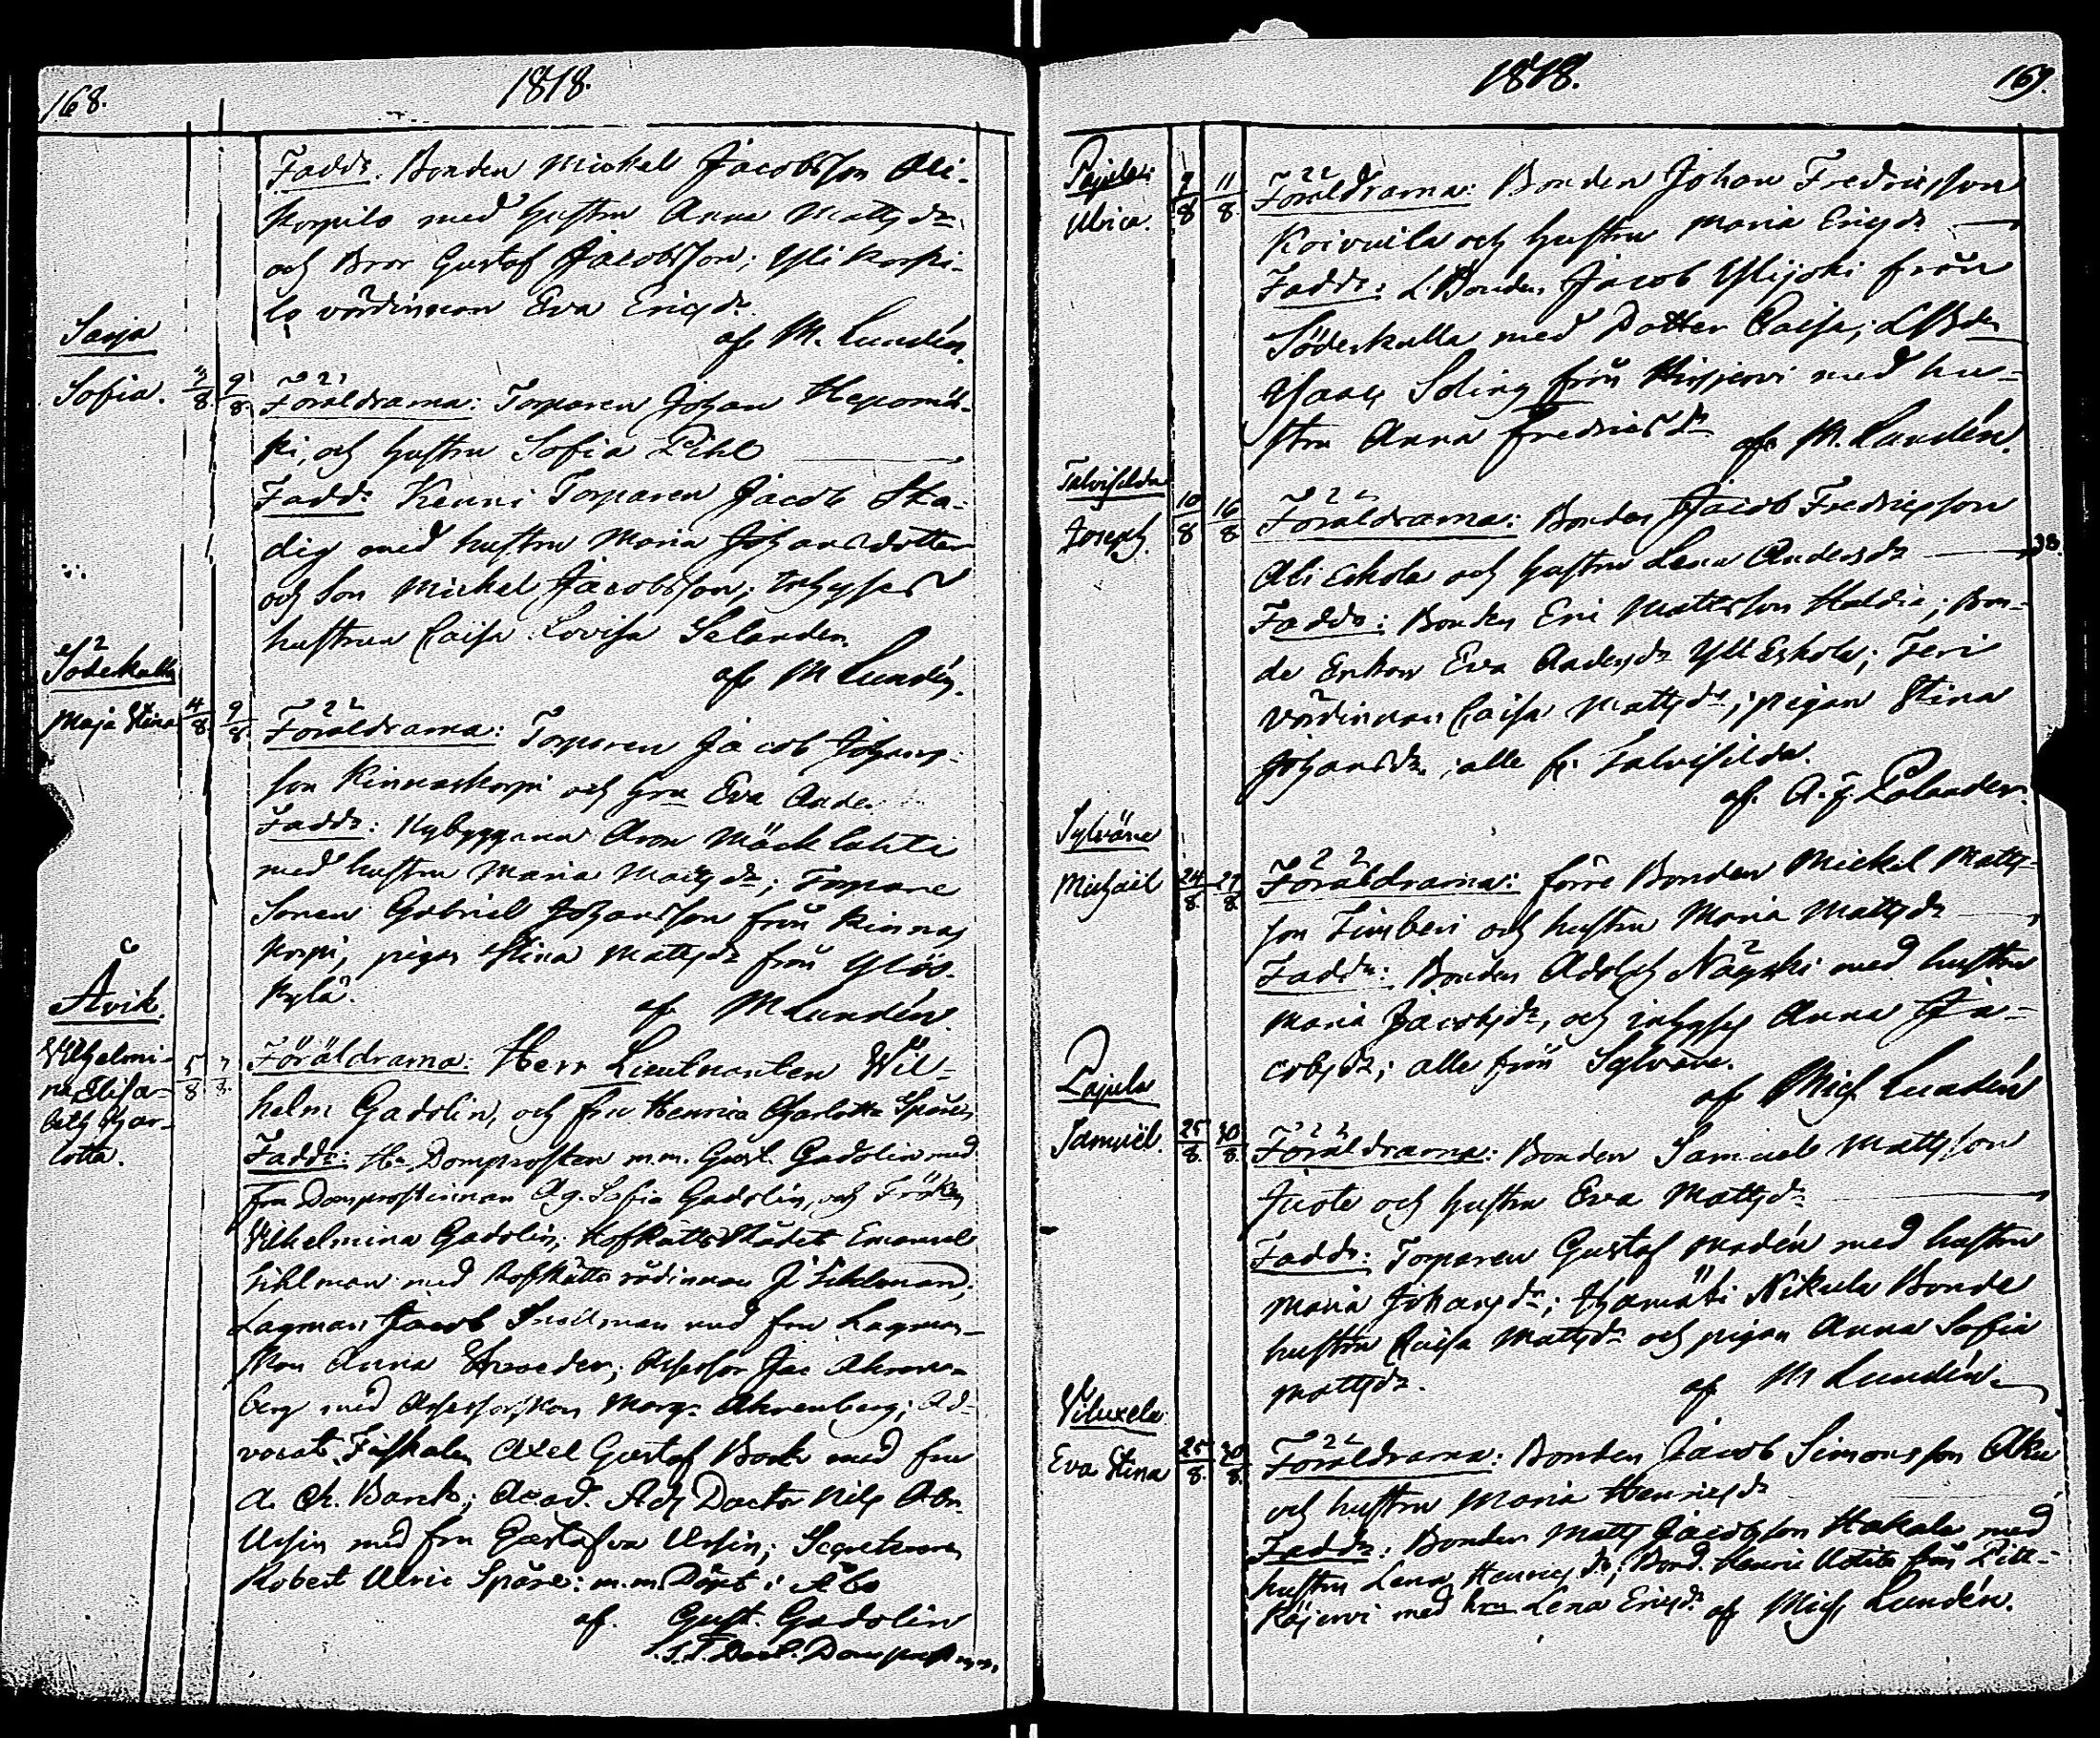 168.
1818.
Fadd: Bonden Mickel Jacobsson Ali-
korpilo med hustru Anna Mattsdr
och Bror Gustaf Jacobsson; Yli Korpi-
lo värdinnan Eva Ericsdr
af M. Lundén.
Sarja
Sofia. 3/8 9/8 Föräldrarna: Torparen Johan Heponiit-
ki, och hustru Sofia Pihl
Fadd: Kenni Torparen Jacob Sta-
dig med hustru Maria Johansdotter
och Son Mickel Jacobsson; inhyses
hustrun Caisa Lovisa Selander.
af M Lundén.
Söderkulla
Maja Stina 4/8 9/8 Föräldrarna: Torparen Jacob Johans-
son Kinnaskorpi och hru Eva Ande.
Fadd: Nybyggaren Aron Mäcklahti
med hustru Maria Mattsdr; Torpare
Sonen Gabriel Johansson från Kinnas
korpi, pigan Stina Mattsdr från Ylös-
kylä.
af M Lundén.
Åvik.
Wilhelmi-
na Elisa-
beth Char-
lotta.
5/8 7/8 Föräldrarna: Herr Lieutnanten Wil-
helm Gadolin, och fru Henrica Charlotta Spåre
Fadd: Hr Domprosten m.m. Gust. Gadolin med
fru Domprostinnan Ag. Sofia Gadolin, och Fröken
Wilhelmina Gadolin; HofRätts Rådet Emanuel
med Hofrätts rådinnan
Lagman Jacob med fru Lagman-
skan Anna Schroeder; Assessor Jac Ahren-
berg med Assessorskan Marg. Ahrenberg; Ad-
vocat Fiskalen Axel Gustaf Bock med fru
A. Ch. Bock; Acad. Adj Doctor Nils Abr.
Ursin med fru Gustafva Ursin; Secreteraren
Robert Ulric Spåre: m.m. Döpt i Åbo
af. Gust. Gadolin
S.T. Doct. Domprost m.m.
1818.
169.
Pajula:
Ulrica. 9/8 11/8 Föräldrarna: Bonden Johan Fredricsson
Koivuila och hustru Maria Ericsdr
Fadd: LBonden Jacob Ylijoki från
Söderkulla med Dotter Caisa; LBdn
Isaac Soling från Hirsjervi med hu-
stru Anna Fredricsdr
af M. Lundén.
Talvisilda
Joseph. 10/8 16/8 Föräldrarna: Bonden Jacob Fredricsson
Ali Eskola och hustru Lena Andersdr
Fadd: Bonden Eric Mattsson Haldia; Bon-
de Enkan Eva Andersdr Yli Eskola; Teri
värdinnan Caisa Mattsdr; pigan Stina
Johansdr; alle fr. Talvisilda.
af. A. J. Polander.
Sylväne
Michaël 24/8 29/8 Föräldrarna: förre Bonden Mickel Matts-
son Timberi och hustru Maria Mattsdr
Fadd: Bonden Adolph Näyski med hustru
Maria Jacobsdr, och inhyses Anna Ja-
cobsdr; alle från Sylväne.
af Mich Lundén
Pajula
Samuel. 25/8 30/8 Föräldrarna: Bonden Samuel Mattsson
Juote och hustru Eva Mattsdr
Fadd: Torparen Gustaf Modén med hustru
Maria Johansdr; Nikula Bonde
hustrun Caisa Mattsdr och pigan Anna Sofia
Mattsdr.
af M Lundén
Viluxela
Eva Stina 25/8 30/8 Föräldrarna: Bonden Jacob Simonsson Aku
och hustru Maria Henricsdr
Fadd: Bonden Matts Jacobsson Hakala med
hustru Lena Henricsdr; Bond. Henric från Pitt-
käjervi med hru Lena Ericsdr. af Mich Lundén.